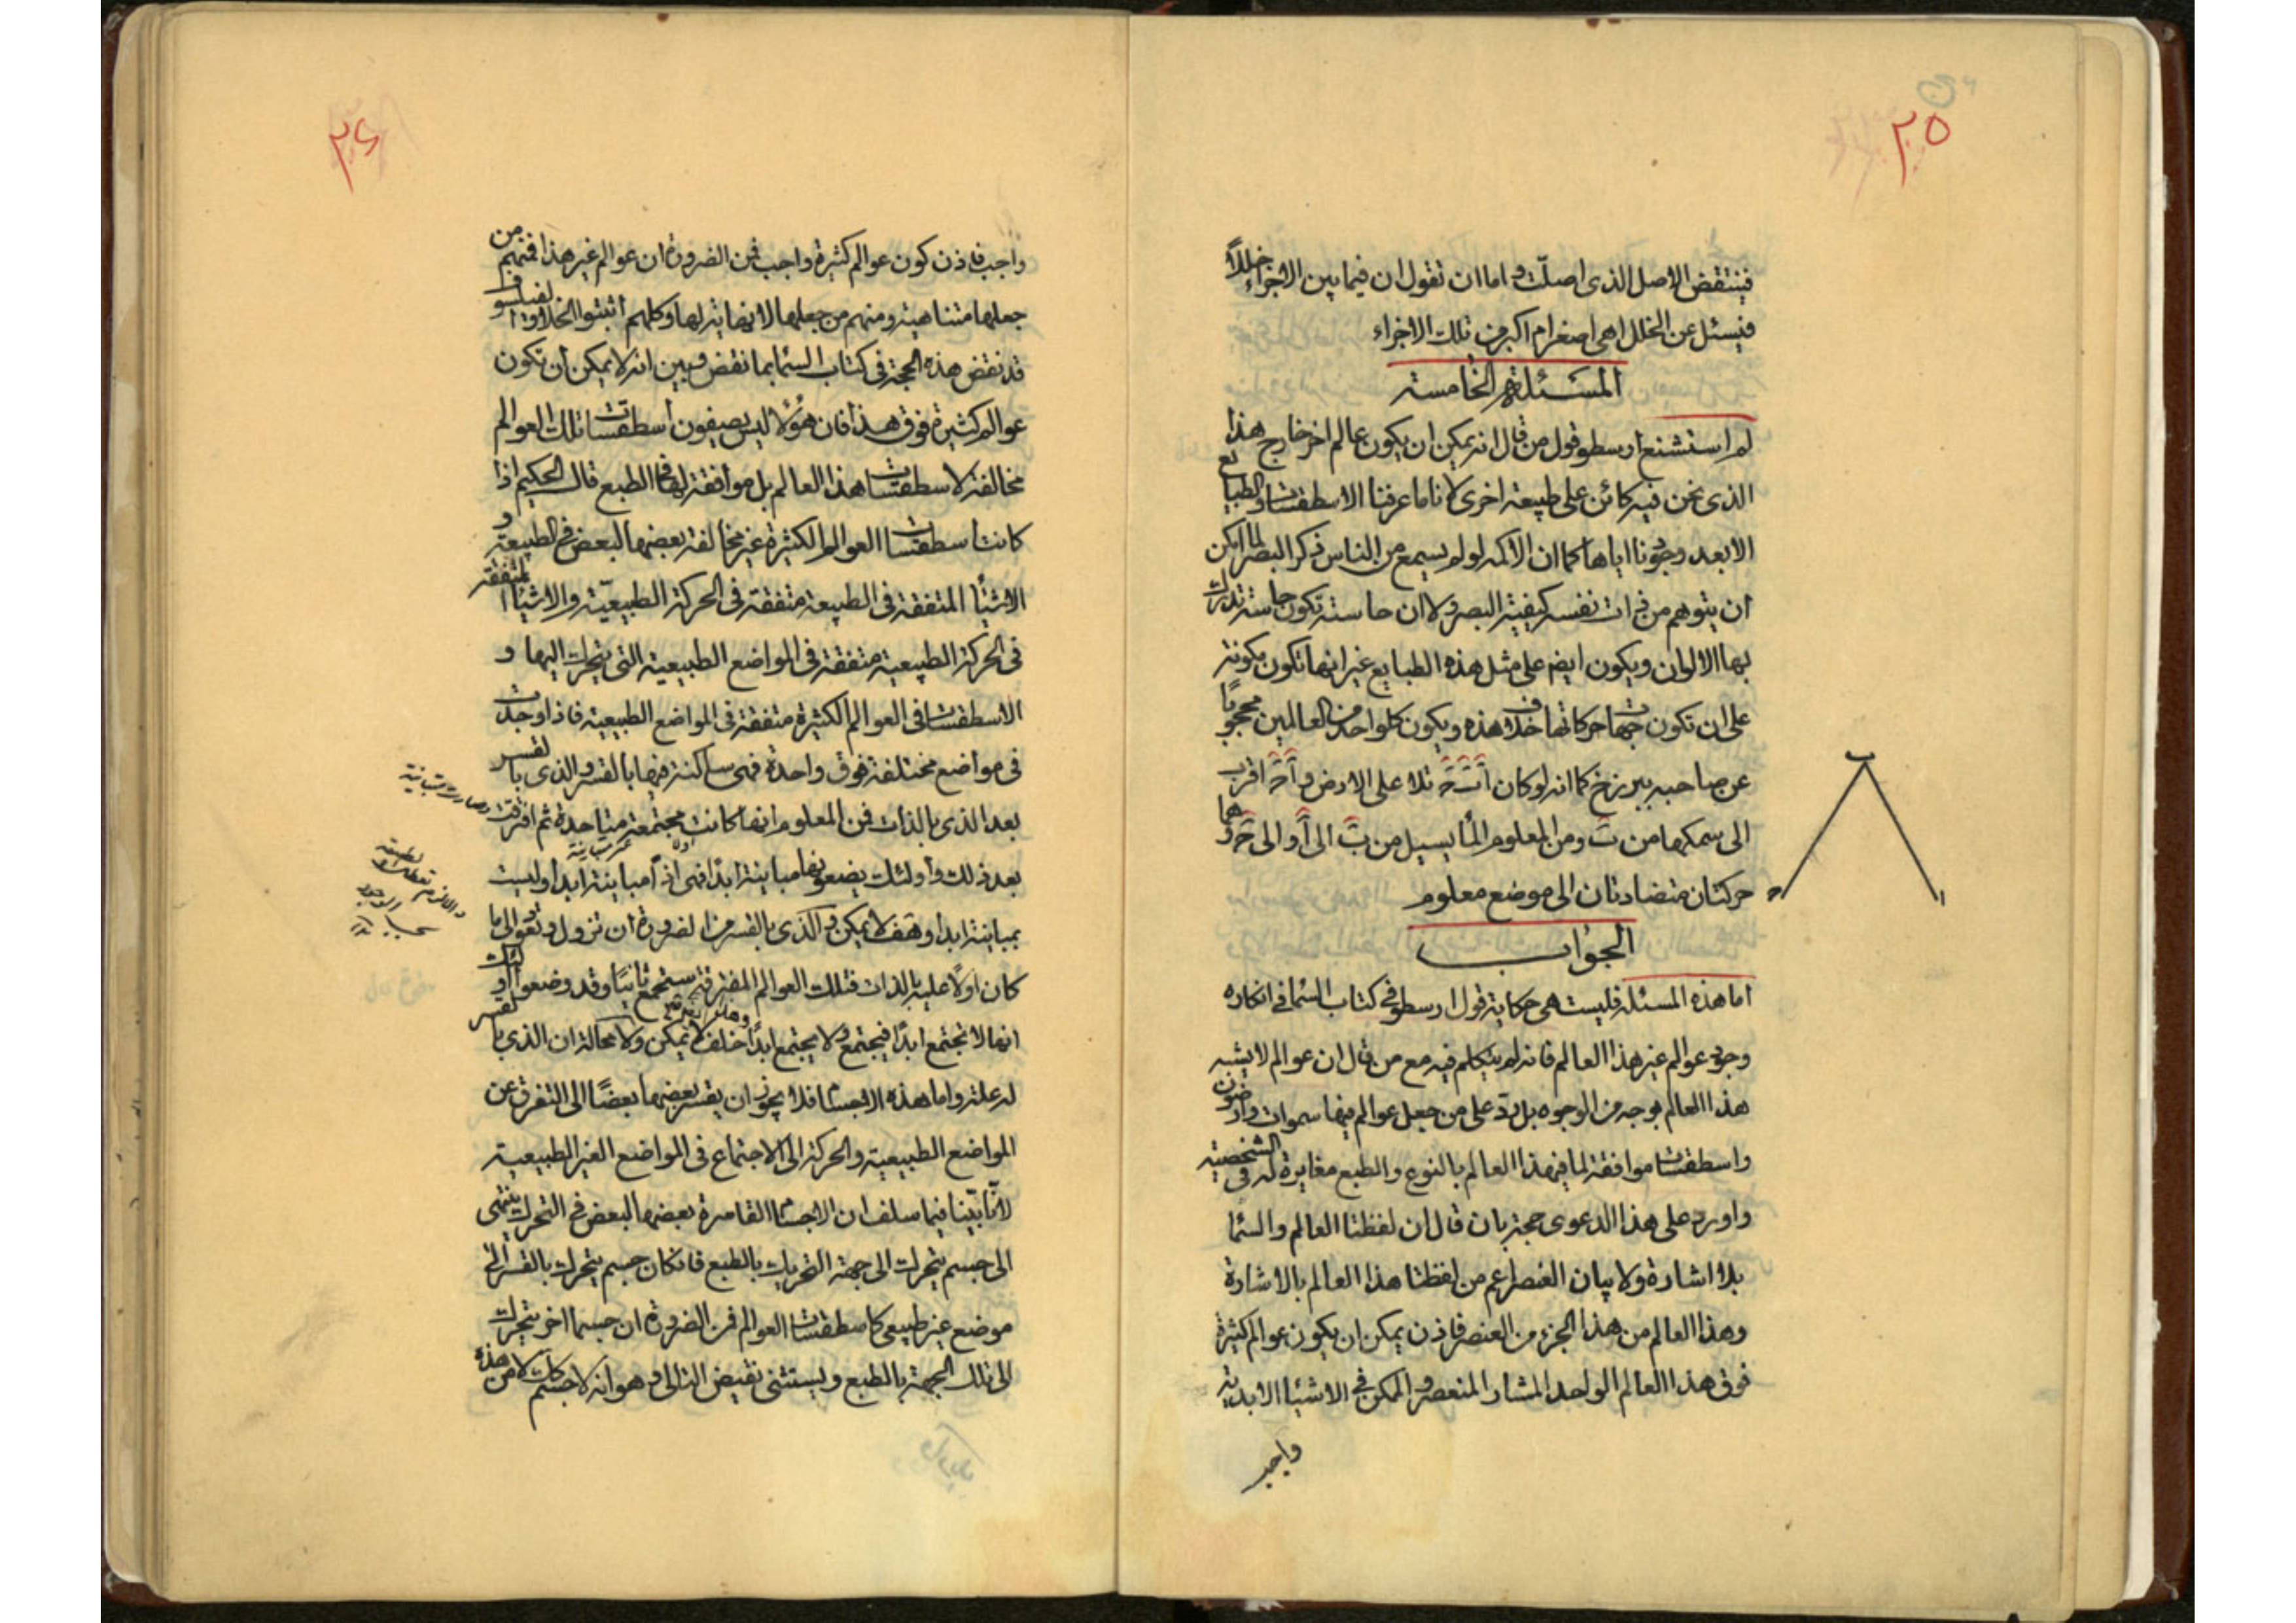 ٢٥
فينتقض الاصل الذى اصلّت واما ان تقول ان فيما بين الاجزاء خللاً
فيسئل عن الخلل اهى اصغر ام اكبر من تلك الاجزاء
المسئلة الخامسة
لم استشنع ارسطو قول من قال انه يمكن ان يكون عالم اخر خارج هذا
الذى نحن فيه كائن على طبيعة اخرى لانا ما عرفنا الاسطقسات والطبايع
الا بعد وجودنا اياها كما ان الاكمه لو لم يسمع من الناس ذكر البصر لما امكن
ان يتوهم من ذات نفسه كيفية البصر ولا ان حاسة تكون حاسة تدرك
بها الالوان ويكون ايضا على مثل هذه الطبايع غير انها تكون مكونة
على ان تكون جهات حركاتها خلاف هذه ويكون كل واحد من العالمين محجوبا
عن صاحبه ببرزخ كما انه لو كان ا ب ح تلا على الارض و ا ح اقرب
الى سمكها من ب ومن المعلوم الماء يسيل من ب الى ا و الى ح وهما
حركتان متضادتان الى موضع معلوم
ب
ح ا
الجواب
اما هذه المسئلة فليست هى حكاية قول ارسطو فى كتاب السما فى انكاره
وجود عوالم غير هذا العالم فانه لم يتكلم فيه مع من قال ان عوالم لا يشبه
هذا العالم بوجه من الوجوه بل يردّ على من جعل عوالم فيها سموات وارضون
واسطقسات موافقة لما فى هذا العالم بالنوع والطبع مغايرة له فى الشخصية
واورد على هذا الدعوى حجة بان قال ان لفظنا العالم والسما
بلا اشارة ولا بيان العنصر اعم من لفظنا هذا العالم بالاشارة
وهذا العالم من هذا الجزء من العنصر فاذن يمكن ان يكون عوالم كثيرة
فوق هذا العالم الواحد المشار المنعصر والممكن فى الاشياء الابدية
واجب
٢٦
واجب فاذن كون عوالم كثيرة واجب فمن الضرورة ان عوالم غير هذا فمنهم من
جعلها متناهية ومنهم من جعلها لا نهاية لها وكلهم اثبتوا الخلاء والفيلسوف
قد نقض هذه الحجة فى كتاب السما بما نقض وبين انه لا يمكن ان تكون
عوالم كثيرة فوق هذا فان هؤلاء ليس يصيفون أسطقسات تلك العوالم
مخالفة لاسطقسات هذا العالم بل موافقة لها فى الطبع قال الحكيم اذا
كانت اسطقسات العوالم الكثيرة غير مخالفة بعضها لبعض فى الطبيعة و
الاشيأ المتفقة فى الطبيعة متفقة فى الحركة الطبيعيّة والاشياء المتفقة
فى الحركة الطبيعية متفقة فى المواضع الطبيعية التى يتحرك اليها و
الاسطقسات فى العوالم الكثيرة متفقة فى المواضع الطبيعية فاذا وجدت
فى مواضع مختلفة فوق واحدة فهى ساكنة فيها بالقسر والذى بالقسر
بعد الذى بالذات فمن المعلوم انها كانت مجتمعة متاحدة ثم افترقت
بعد ذلك وأولئك يضعونها مباينة ابداً فهى اذاً مباينة ابدا وليست
بمباينة ابدا وهف لا يمكن والذى بالقسر من الضرورة ان تزول وتعود الى ما
كان اولاً عليه بالذات فتلك العوالم المفترقة ستجمع ثانيًا وقد وضعوا اولئك
انها لا تجتمع ابدًا فيجتمع ولا يجتمع ابدًا خلف لا يمكن ولا محالة ان الذى بالقسر
له علة واما هذه الاجسام فلا يجوز ان يقسر بعضها بعضًا الى التفرق عن
المواضع الطبيعية والحركة الى الاجتماع فى المواضع الغير الطبيعية
لانّا بيّنا فيما سلف ان الاجسام القاسرة بعضها لبعض فى التحرك ينتهى
الى جسم يتحرك الى جهة التحريك بالطبع فان كان جسم يتحرك بالقسر الى
موضع غير طبيعى كاسطقسات العوالم فمن الضرورة ان جسما اخر يتحرك
الى تلك الجهة بالطبع ويستثنى نقيض التالى وهو انه لا جسم كان لا من هذه
وصارت متباينة